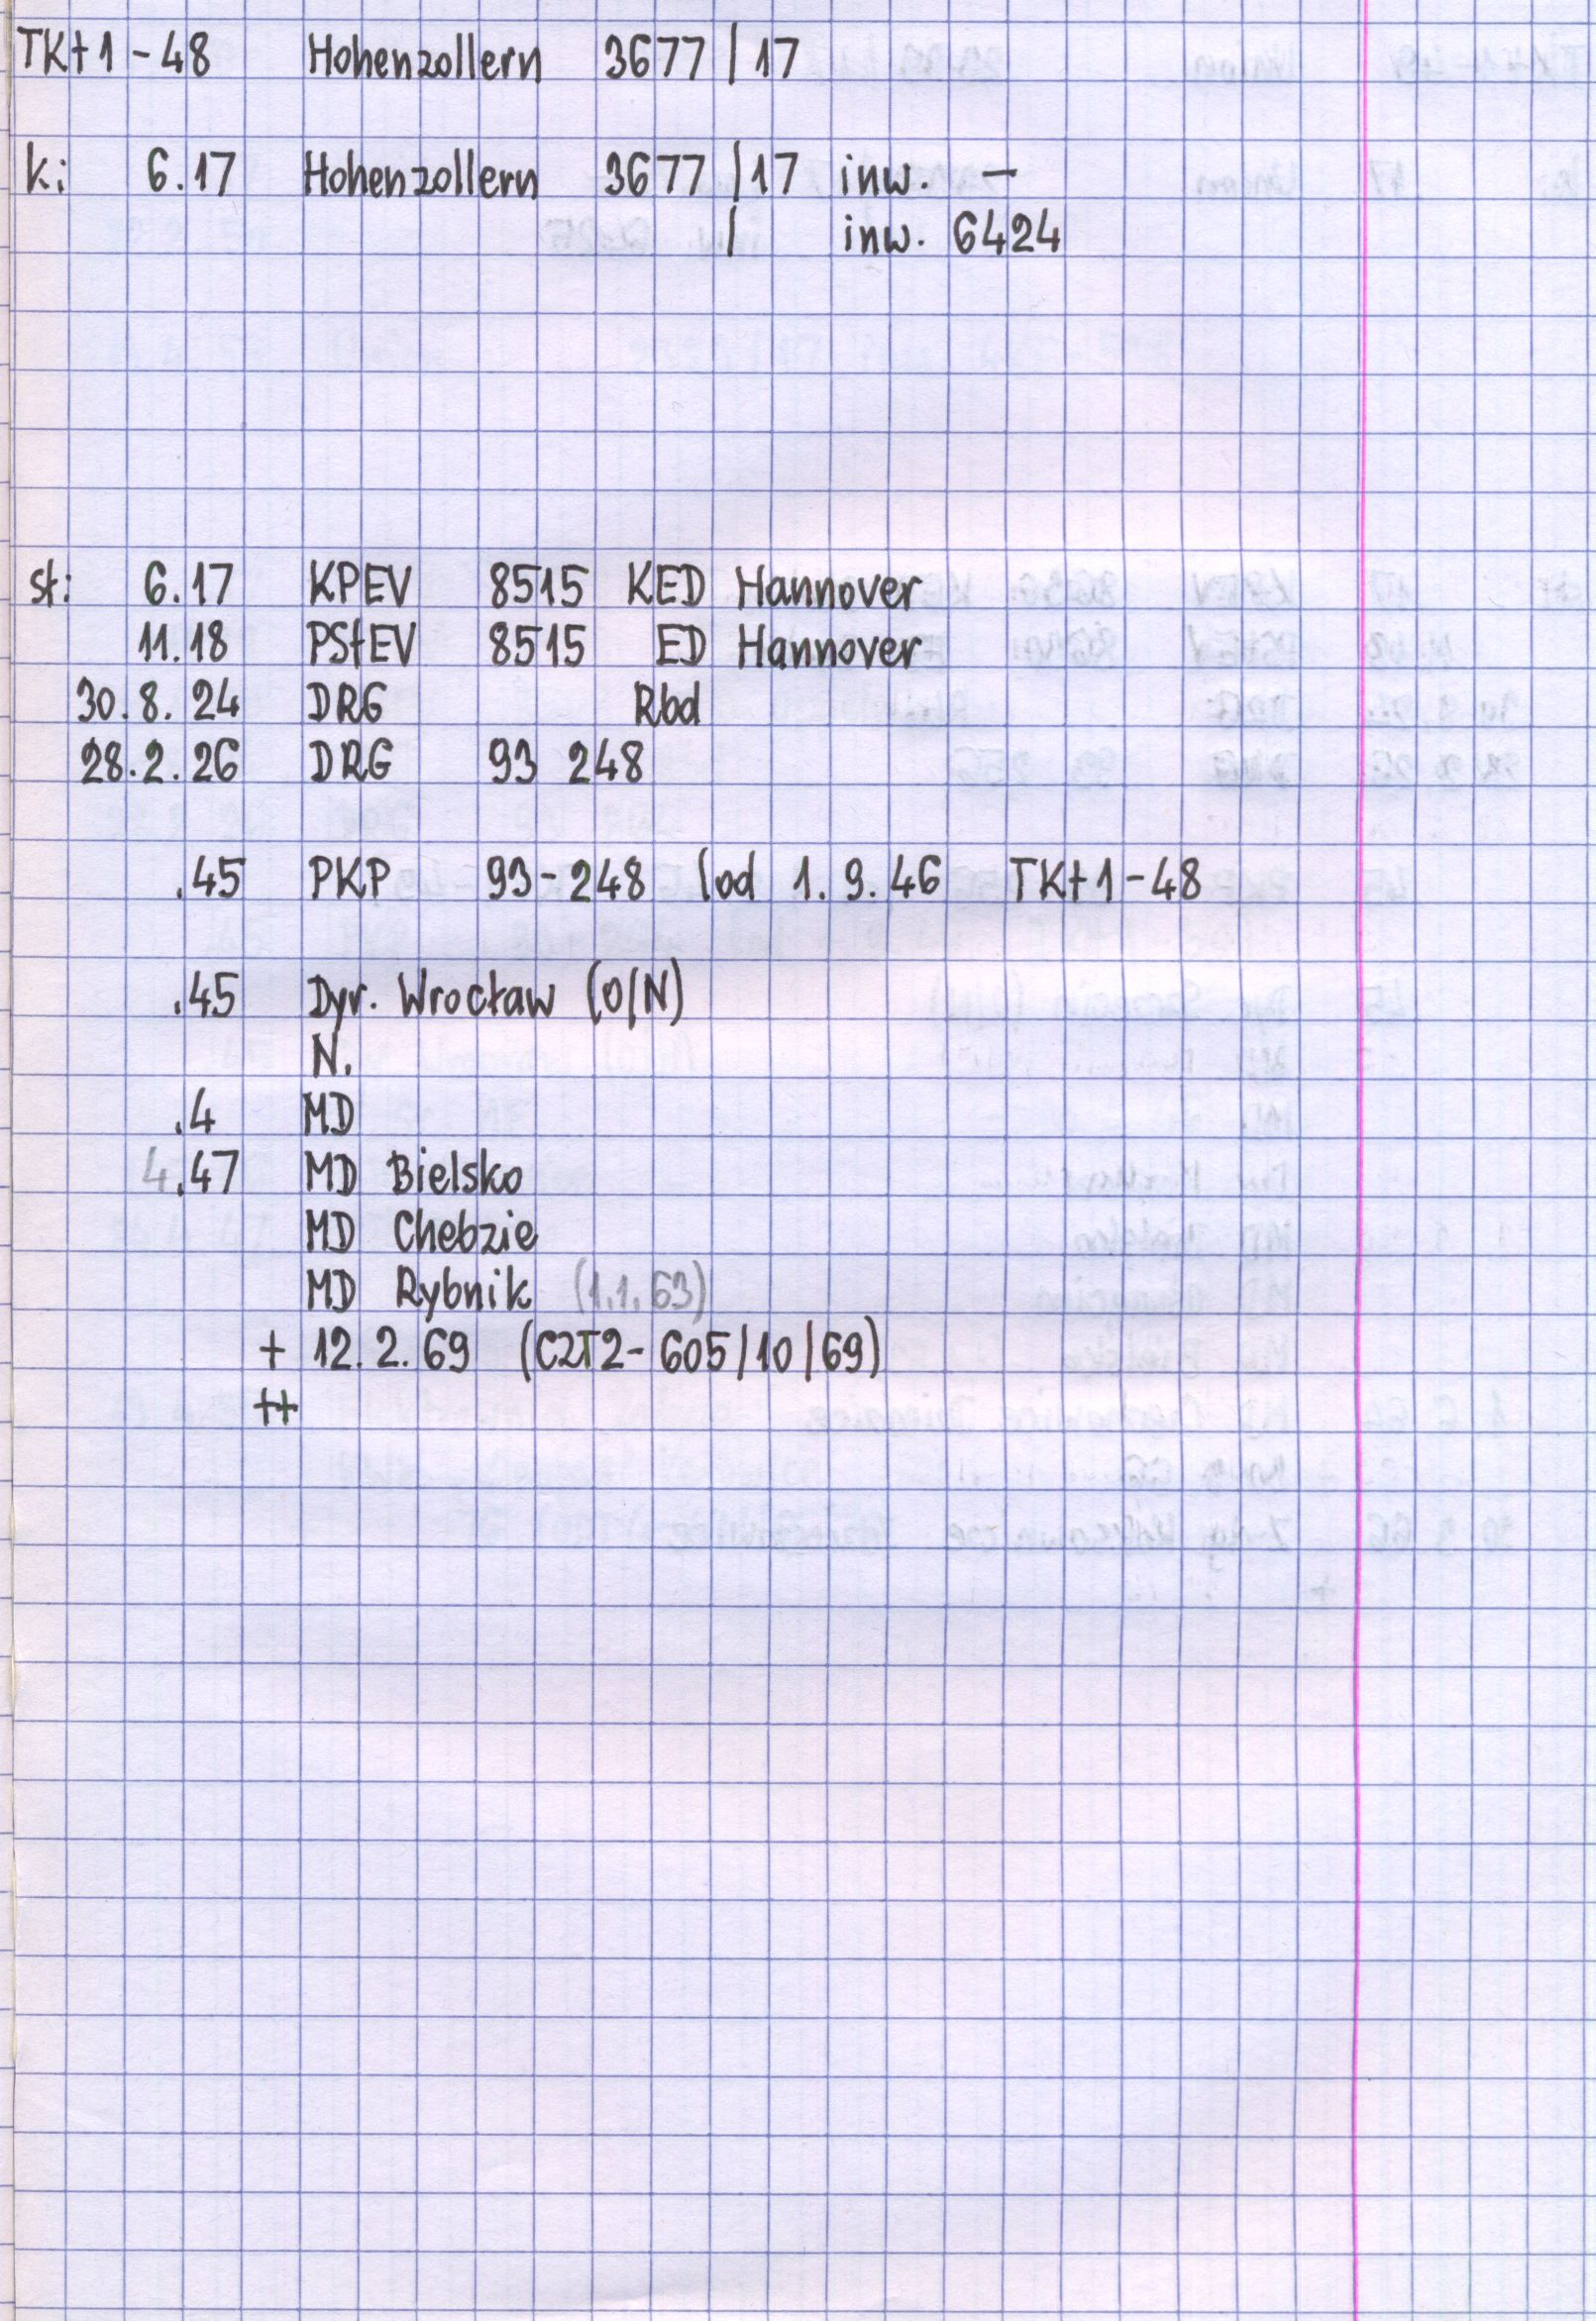 TKt1-48 Hohenzollern 3677/17
k: 6.17 Hohenzollern 3677/17 inw. -
/ inw. 6424
st: 6.17 KPEV 8515 KED Hannover
11.18 PStEV 8515 ED Hannover
30.8.24 DRG Rbd
28.2.26 DRG 93 248
.45 PKP 93-248 (od 1.9.46 TKt1-48
.45 Dyr. Wrocław (O/N)
N.
.4 MD
4.47 MD Bielsko
MD Chebzie
MD Rybnik (1.1.63)
+ 12.2.69 (C2T2-605/10/69)
++